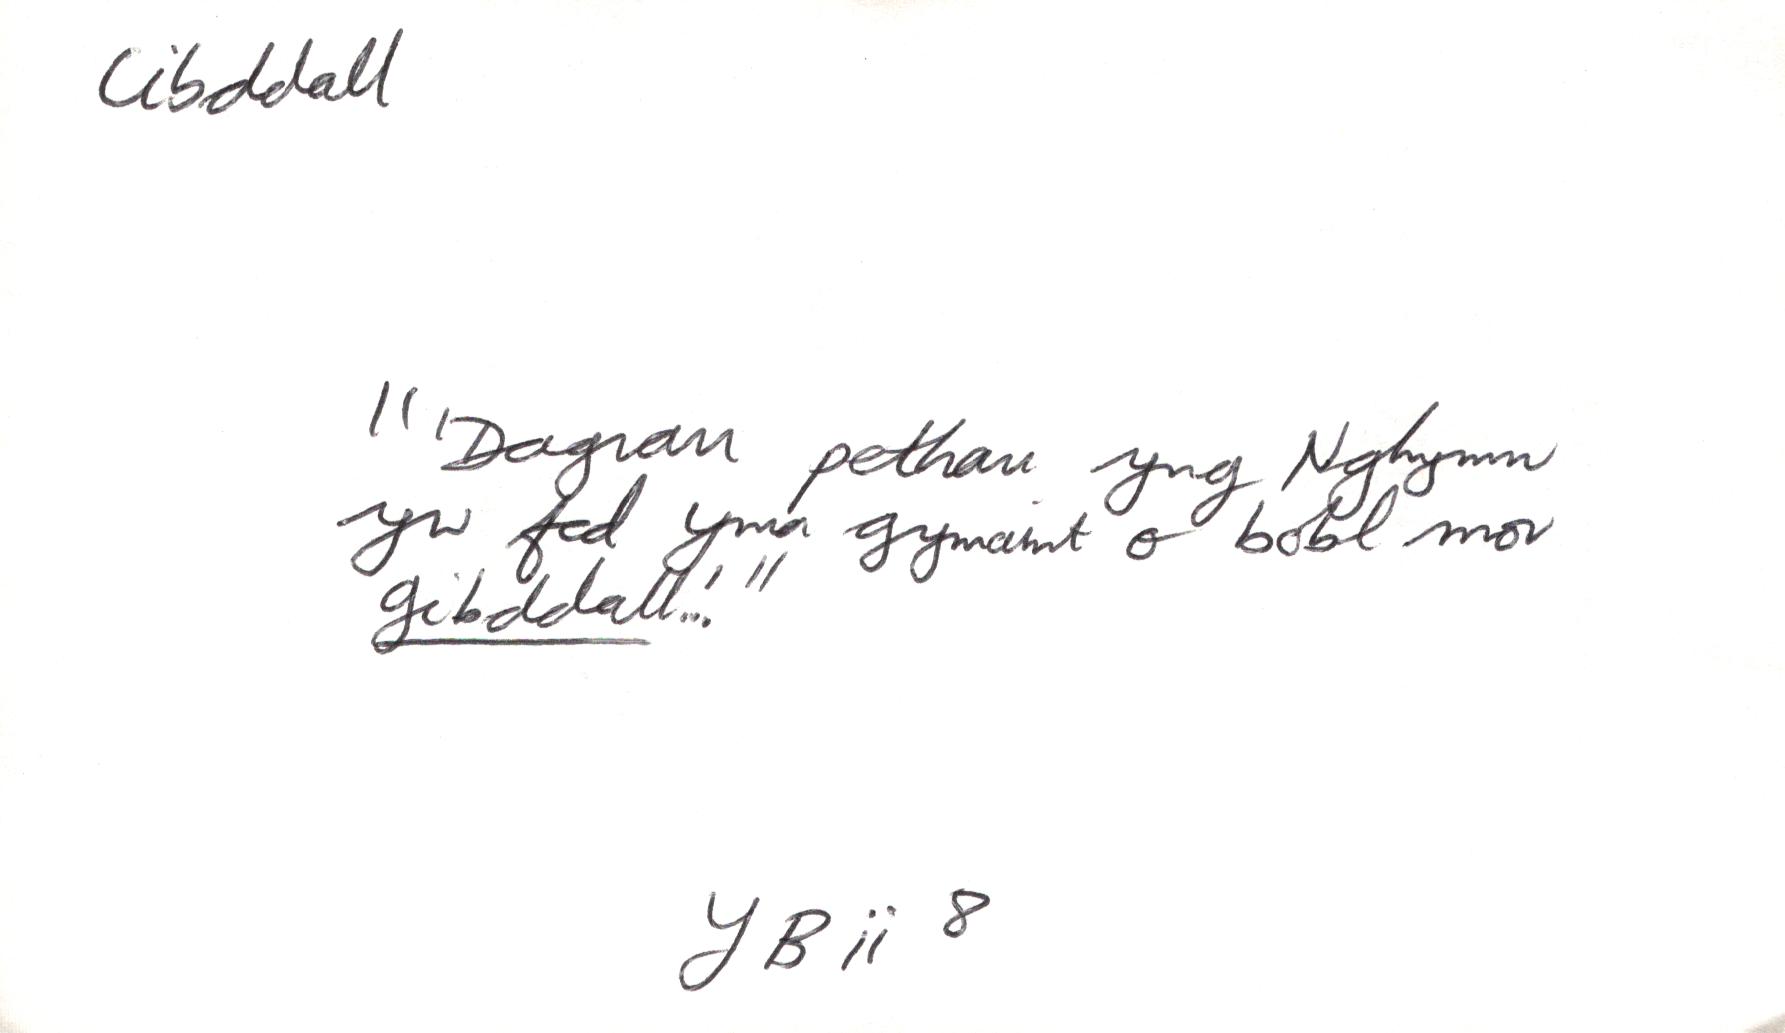 Cibddall
"'Dagrau pethau yng Nghymru
yw fod yma gymaint o bobl mor
gibddall...'"
YB ii 8